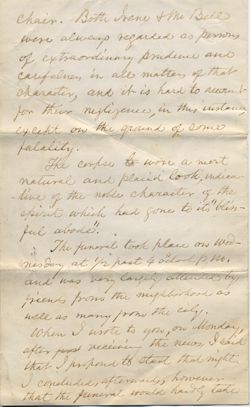 chair. Both Irene & Mr Bell
were always regarded as persons
of extraordinary prudence and
carefulness in all matters of that
character, and it is hard to account
for their negligence, in this instance
except on the ground of some
fatality.
The corpse to wore a most
natural and placid look, indica-
tive of the noble character of the
spirit which had gone to its "bliss-
ful abode".
The funeral took place on Wed-
nesday at 1/2 past 4 oclock P.M.
and was very largely attended by
friends from the neighborhood as
well as many from the city.
When I wrote to you, on Monday,
after receiving the news, I said
that I proposed to start that night.
I concluded, afterwards, however
that the funeral would hardly take